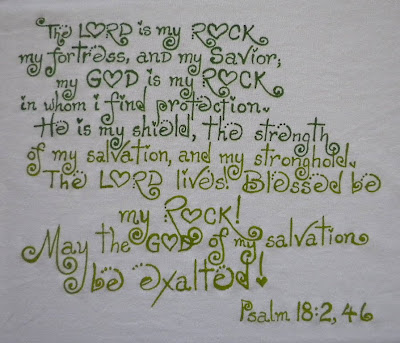 The LORD is my ROCK
my fortress, and my Savior;
my GOD is my ROCK
in whom i find protection.
He is my shield, the strength
of my salvation, and my stronghold.
The LORD lives! Blessed be
my ROCK!
May the GOD of my salvation
be exalted!
Psalm 18:2, 46